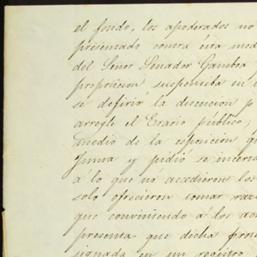 el fondo, los apoderados no
presentado contra esta med
del Señor Senador Gamboa
proposicion suspensiva en
se difiriera la discusion p
arregle el Erario público;
medio de la esposicion q
Junta y pidió se
á lo que no accedieron los
solo ofrecieron tomar raz
que conviniendo á los ac
presenta que dicha
signada en un registro